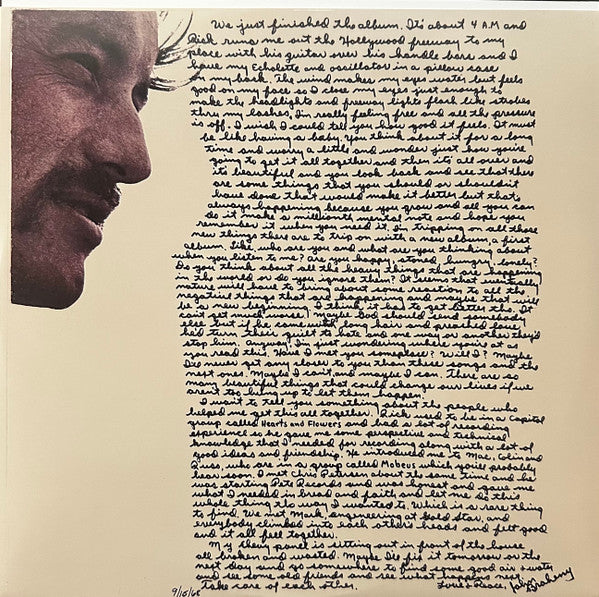 We just finished the album. It's about 4 A.M and
Rick runs me out the Hollywood freeway to my
place with his guitar over his handle bars and I
have my Echolette and oscillator in a pillow case
on my back. The wind makes my eyes water but feels
good on my face so I close my eyes just enough to
make the headlights and freeway lights flash like strobes
thru my lashes, I'm really feeling free and all the pressure
is off. I wish I could tell you how good it feels. It must
be like having a baby. You think about it for a long
time and worry a little and wonder just how you're
going to get it all together and then it's all over and
it's beautiful and you look back and see that there
are some things that you should or shouldn't
have done that would make it better but that's
always happening because you grow and all you can
do is make a millionth mental note and hope you
remember it when you need it. I'm tripping on all those
new things there are to trip on with a new album, a first
album. Like, who are you and what are you thinking about
when you listen to me? are you happy, stoned, hungry, lonely?
Do you think about all the heavy things that are happening
in the world or do you ignore them? It seems that eventually
nature will have to bring about some reaction to all the
negative things that are happening and maybe that will
be a new beginning. I think it has to get better tho. It
can't get much worse! Maybe God should send somebody
else but if he came with long hair and preached love
he'd turn their guilt to hate and one way or another they'd
stop him. Anyway, I'm just wondering where you're at as
you read this. Have I met you someplace? Will I? Maybe
I'll never get any closer to you than these songs and the
next ones. Maybe I can't and maybe I can. There are so
many beautiful things that could change our lives if we
aren't too hung up to let them happen.
I want to tell you something about the people who
helped me get this all together. Rick used to be in a Capitol
group called Hearts and Flowers and had a lot of recording
experience so he gave me some perspective and technical
knowledge that I needed for recording along with a lot of
good ideas and friendship. He introduced me to Mac, Colin and
Russ, who are in a group called Mobeus which you'll probably
hear soon. I met Chris Petersen about the same time and he
was starting Pete Records and was honest and gave me
what I needed in bread and faith and let me do this
whole thing the way I wanted to. Which is a rare thing
to find. We met Mark, engineering at Gold Star, and
everybody climbed into each other's heads and felt good
and it all fell together.
My Chevy panel is sitting out in front of the house
all broken and wasted. Maybe I'll fix it tomorrow or the
next day and go somewhere to find some good air & water
and see some old friends and see what happens next.
Take care of each other.
Love & Peace, John Braheny
9/15/68